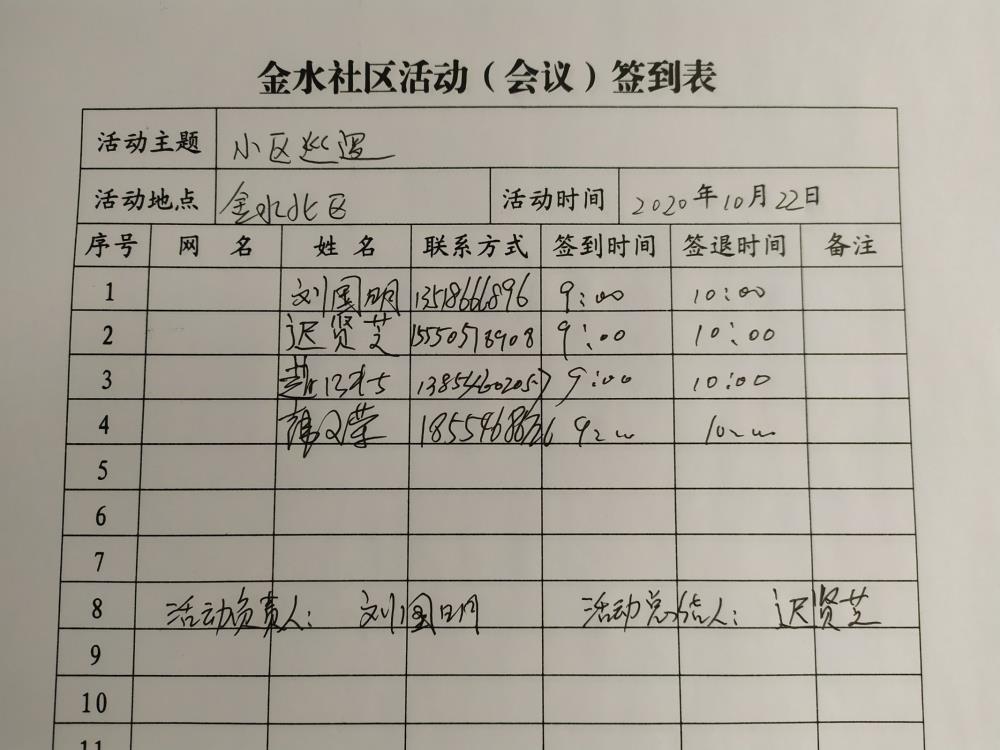 金水社区活动（会议）签到表
活动主题 小区巡逻
活动地点 金水北区 活动时间 2020年10月22日
序号 网 名 姓 名 联系方式 签到时间 签退时间 备注
1 刘国明 13518666896 9:00 10:00
2 迟贤芝 15550573908 9:00 10:00
3 13854600205 9:00 10:00
4 9:00 10:00
5
6
7
8 活动负责人： 刘国明 活动总结人： 迟贤芝
9
10
11